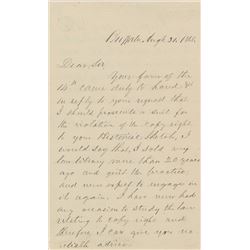 Buffalo, Augt 31, 188
Dear Sir
Your favor of the
14th came duly to hand &
in reply to your request that
I should prosecute a suit for
the violation of the copy right
to your Historical Sketch, I
would say that I sold my
law library more than 20 years
ago and quit the practice
and never expect to engage in
it again. I have never had
any occasion to study the law
relating to copy right and
therefore I can give you no
reliable advice